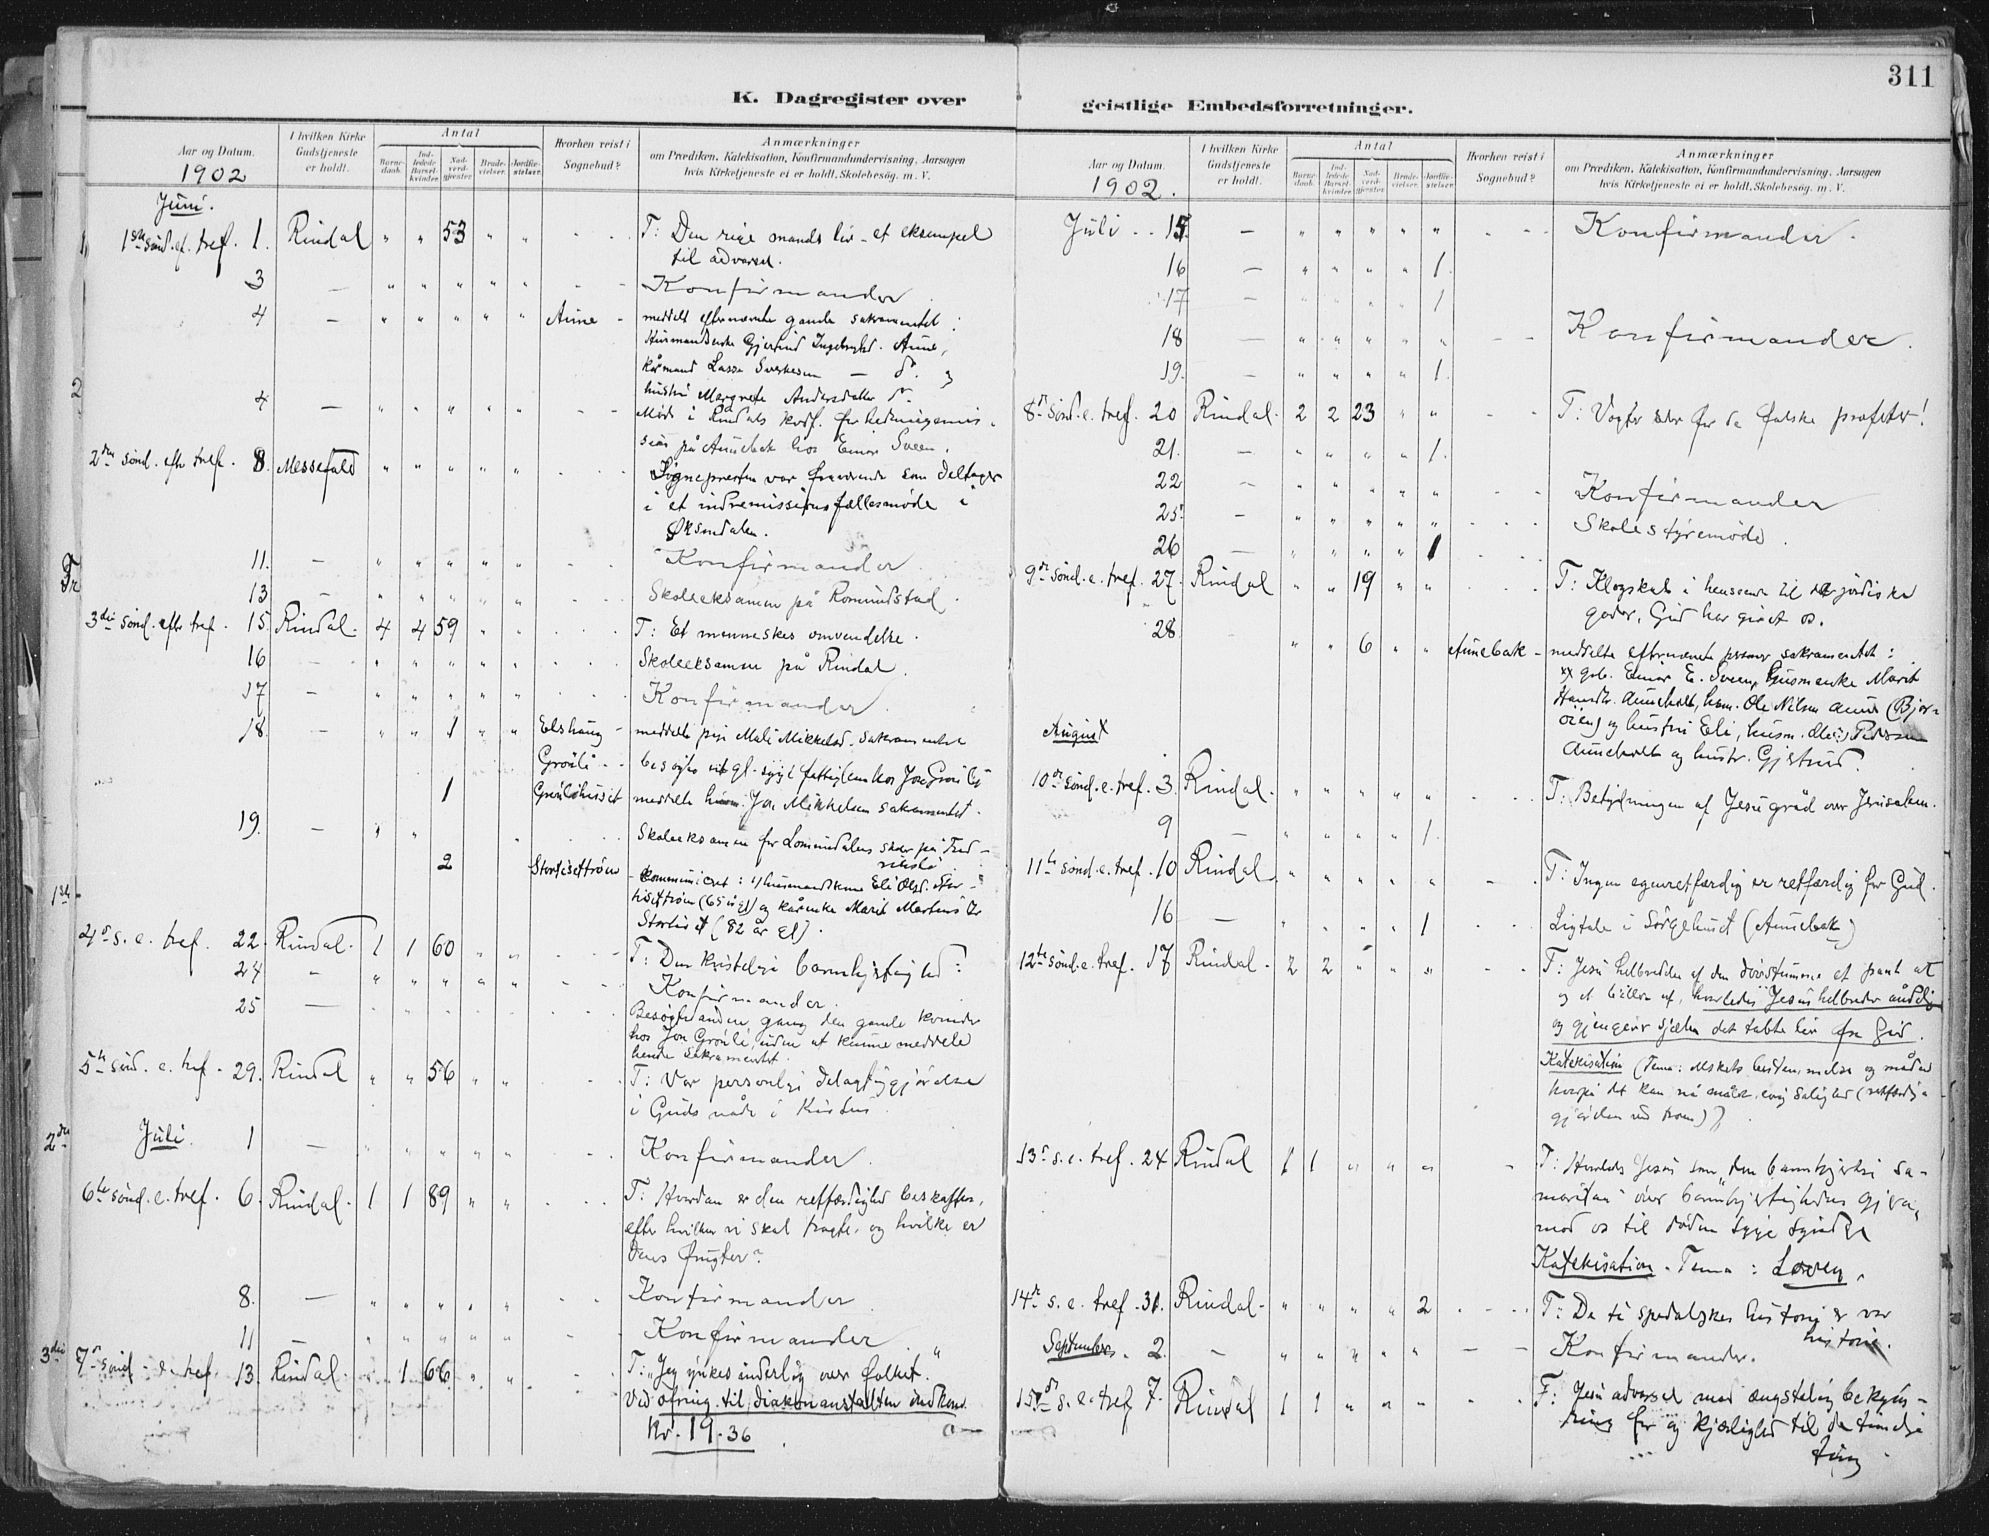 311
K. Dagregister over
geistlige Embedsforretninger.
Aar og Datum.
1902
I hvilken Kirke Gudstjeneste er holdt.
Antal
Barne-daab. Ind-ledede Barsel-kvinder. Nad-verd-gjester. Brude-vielser. Jordfæ-stelser.
Hvorhen reist i Sognebud?
Anmærkninger
om Prædiken, Katekisation, Konfirmandundervisning, Aarsagen
hvis Kirketjeneste ei er holdt, Skolebesøg. m. V.
Juni.
1ste sønd. ef. tref. 1. Rindal " " 53 " " T: Den rige mands liv - et eksempel
til advarsel.
3 — " " " " " Konfirmander
4 — " " " " " Aune - meddelt efternævnte gamle sakramentet:
Husmandsenke Gjertrud Ingebrigtsd. Aune,
kårmand Lasse Sivertsen — do. og
hustru Margrete Andersdatter do.
4 — " " " " " Møde i Rindals krdf. for hedningemis-
sion på Aunebak hos Einar Sveen.
2den sønd. efter tref. 8. Messefald " " " " " Sognepresten var fraværende som deltager
i et indremissionsfællesmøde i
Øksendalen.
11. — " " " " " Konfirmander
13 — " " " " " Skoleeksamen på Romundstad.
3die sønd. efter tref. 15. Rindal 4 4 59 " " T: Et menneskes omvendelse.
16 — " " " " " Skoleeksamen på Rindal.
17 — " " " " " Konfirmander.
18. — " " 1 " " Elshaug - meddelte pige Mali Mikkelsd. sakramentet
Grønli - besøgte gl. sygt fattiglem hos Jon Grønli
1 Grønlihuset meddelte husm. Jon Mikkelsen sakramentet.
19. — " " Skoleeksamen for Lomundalens skoler på Fred-
rikslå
2 Storlisettrøen - kommuniceret: 1) husmandskone Eli Olsd. Stor-
lisettrøen (65 år gl) og kårenke Marit Martensdr
Storliset (82 år gl).
4de s. e. tref. 22. Rindal. 1 1 60 " " T: Den kristelige barmhjertighed:
24 — " " " " " Konfirmander.
25 — Besøgte anden gang den gamle kvinde
hos Jon Grønli, uden at kunne meddele
hende sakramentet.
5te sønd. e. tref. 29. Rindal " " 56 " " T: Vor personlige delagtiggjørelse
i Guds nåde i Kristus.
Juli. 1 — " " " " " Konfirmander.
6te sønd. e. tref. 6. Rindal. 1 1 89 " " T: Hvordan er den retfærdighed beskaffen,
efter hvilken vi skal tragte, og hvilke er
dens frugter?
8. — " " " " " Konfirmander.
11 — " " " " " Konfirmander
7de sønd. e. tref. 13. Rindal. " 1 66 " " T: "Jeg ynkes inderlig over folket."
Ved ofring til diakonanstalten indkom
Kr. 19.36
Aar og Datum.
1902.
I hvilken Kirke Gudstjeneste er holdt.
Antal
Barne-daab. Ind-ledede Barsel-kvinder. Nad-verd-gjester. Brude-vielser. Jordfæ-stelser.
Hvorhen reist i Sognebud?
Anmærkninger
om Prædiken, Katekisation, Konfirmandundervisning, Aarsagen
hvis Kirketjeneste ei er holdt, Skolebesøg. m. V.
Juli . . 15. — " " " " " Konfirmander.
16 — " " " " 1.
17 — " " " " 1
18 — " " " " " Konfirmander.
19. — " " " " 1.
8de sønd. e. tref. 20 Rindal. 2 2 23 " " T: Vogter eder for de falske profeter!
21. — " " " " 1.
22 — " " " " " Konfirmander
25. — " " " " " Skolestyremøde.
26 — " " " " 1
9de sønd. e. tref. 27. Rindal " " 19 " " T: Klogskab i henseende til de jordiske
goder, Gud har givet os.
28. — " " 6 " " Aunebak - meddelte efternævnte personer sakramentet:
gbr. Einar E. Sveen, husmenke Marit
Auneholt, husm. Ole Nilsen Aune (Bjør-
øien) og hustru Eli, husm. Pedersen
Auneholt og hustr. Gjertrud.
August
10de sønd. e. tref. 3. Rindal. " " " " " T: Betydningen af Jesu gråd over Jerusalem.
9 — " " " " 1.
11te sønd. e. tref. 10 Rindal " " " " " T: Ingen egenretfærdig er retfærdig for Gud.
16 — " " " " 1 Ligtale i Sørgehuset (Aunebak)
12te sønd. e. tref. 17 Rindal. 2 2 " " " T: Jesu helbredelse af den døvstumme et pant at
og et billede af, hvorledes Jesus helbreder åndelig
og gjengiver sjælen det tabte liv fra Gud.
Katekisation (Tema: Mskets bestemmelse og måden
hvorpå det kan nå målet, evig Salighed (retfærdig-
gjørelsen ved troen)).
13de s. e. tref. 24 Rindal 1 1 " " " T: Hvorledes Jesus som "den barmhjertige sa-
maritan" øver barmhjertighedens gjern.
mod os til døden syge syndere
Katekisation. Tema: Loven.
14de s. e. tref. 31. Rindal - " " " " 2 T: De ti spedalskes historie er vor
historie.
September. 2. — " " " " " Konfirmander.
15de s. e. tref 7. Rindal 1 1 " " " T: Jesu advarsel mod ængstelig bekym-
ring for og kjærlighed til de timelige
ting